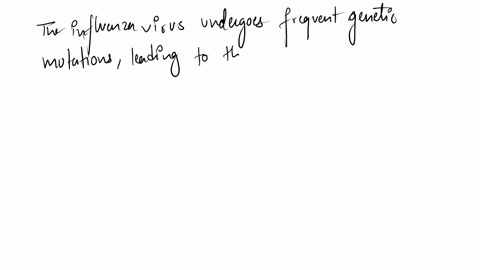 The influenza virus undergoes frequent genetic
mutations, leading to th